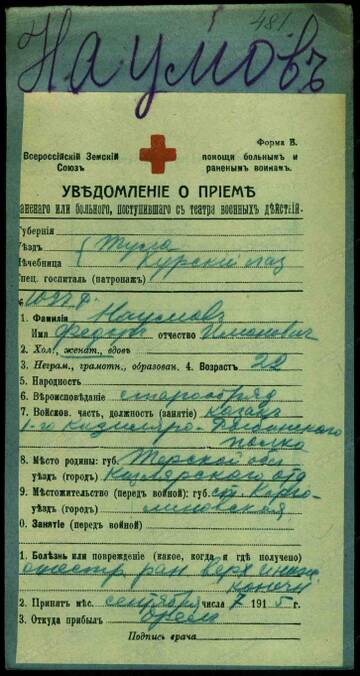 481
Наумовъ
Форма В.
Всероссійскій Земскій Союзъ
помощи больнымъ и раненымъ воинамъ.
УВѢДОМЛЕНІЕ О ПРІЕМѢ
раненаго или больного, поступившаго съ театра военныхъ дѣйствій.
Губернія
ѣздъ Тула
Лечебница Курскій
Спец. госпиталь (патронажъ)
1. Фамилія Наумовъ
Имя Федотъ отчество
2. Хол., женат., вдовъ
3. Неграм., грамотн., образован. 4. Возрастъ 22
5. Народность
6. Вѣроисповѣданіе старообряд
7. Войсков. часть, должность (занятіе) казакъ
1-го Кизляро-Гребенского
полка
8. Мѣсто родины: губ. Терской обл
уѣздъ (городъ) Кизлярскаго отд
9. Мѣстожительство (передъ войной): губ. ст.
уѣздъ (городъ)
0. Занятіе (передъ войной)
1. Болѣзнь или поврежденіе (какое, когда и гдѣ получено)
ран верх
конечн
2. Принятъ мѣс. сентября числа 7 1915 г.
3. Откуда прибылъ Орелъ
Подпись врача